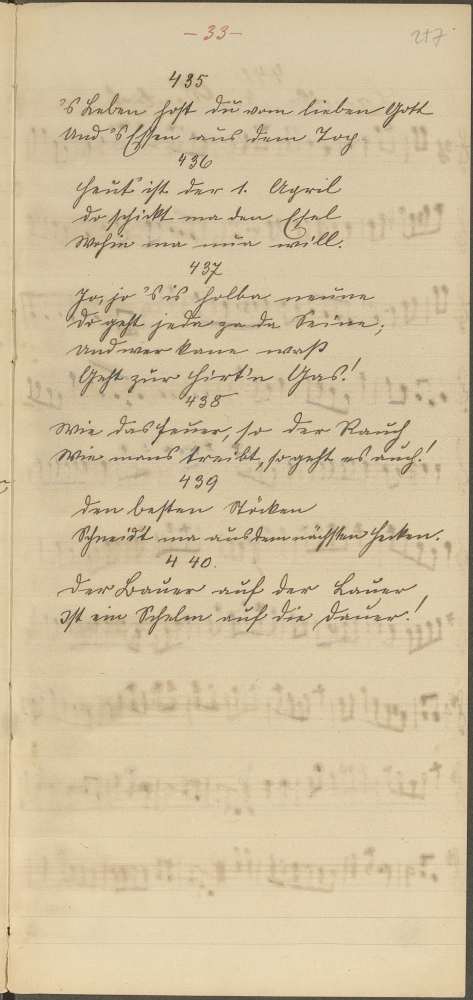 - 33 -
217
435
's Leben host du vom lieben Gott
Und 's Essen aus dem Top
436
Heut' ist der 1. April
Do schickt ma den Esel
Wohin ma nua will.
437
Jo, jo 's is holba neune
Do geht jeda za da Seine,
Und wer kane waß
Geht zur Hirt'n Gas!
438
Wie das Feuer, so der Rauch
Wie mans treibt, so geht es auch!
439
Den besten Stöcken
Schneid't ma aus dem nächsten Hecken.
440.
Der Bauer auf der Lauer
Ist ein Schelm auf die Dauer!